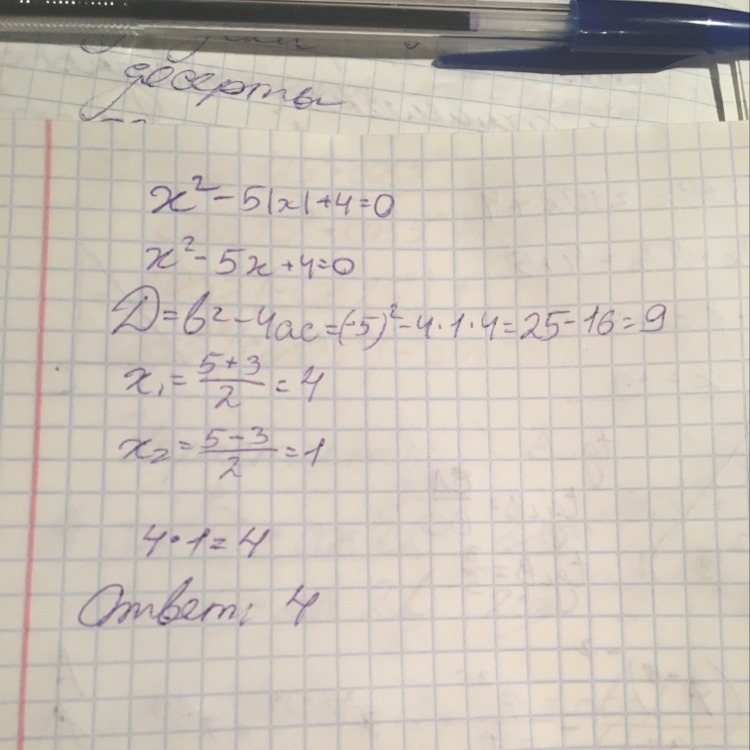 десерты
x² - 5|x| + 4 = 0
x² - 5x + 4 = 0
D = b² - 4ac = (-5)² - 4·1·4 = 25 - 16 = 9
x₁ = (5+3)/2 = 4
x₂ = (5-3)/2 = 1
4·1 = 4
Ответ: 4